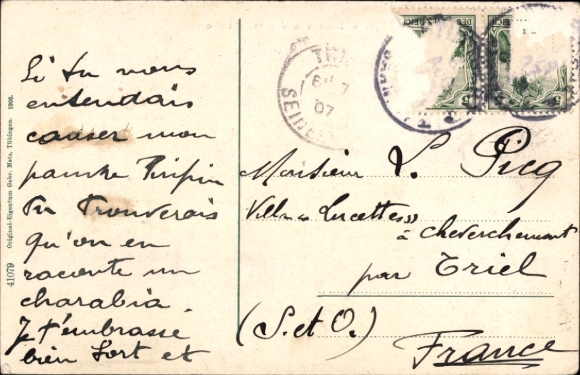 Si tu nous
entendais
causer mon
pauvre Pipin
tu trouverais
qu'on en
raconte un
charabia.
Je t'embrasse
bien fort et
Monsieur L. Picq
Villa "Lucette"
à Cheverchemont
par Triel
(S. et O.)
France
41079 Original-Eigentum Gebr. Metz, Tübingen. 1906.
REICH
REICH
5
5
07